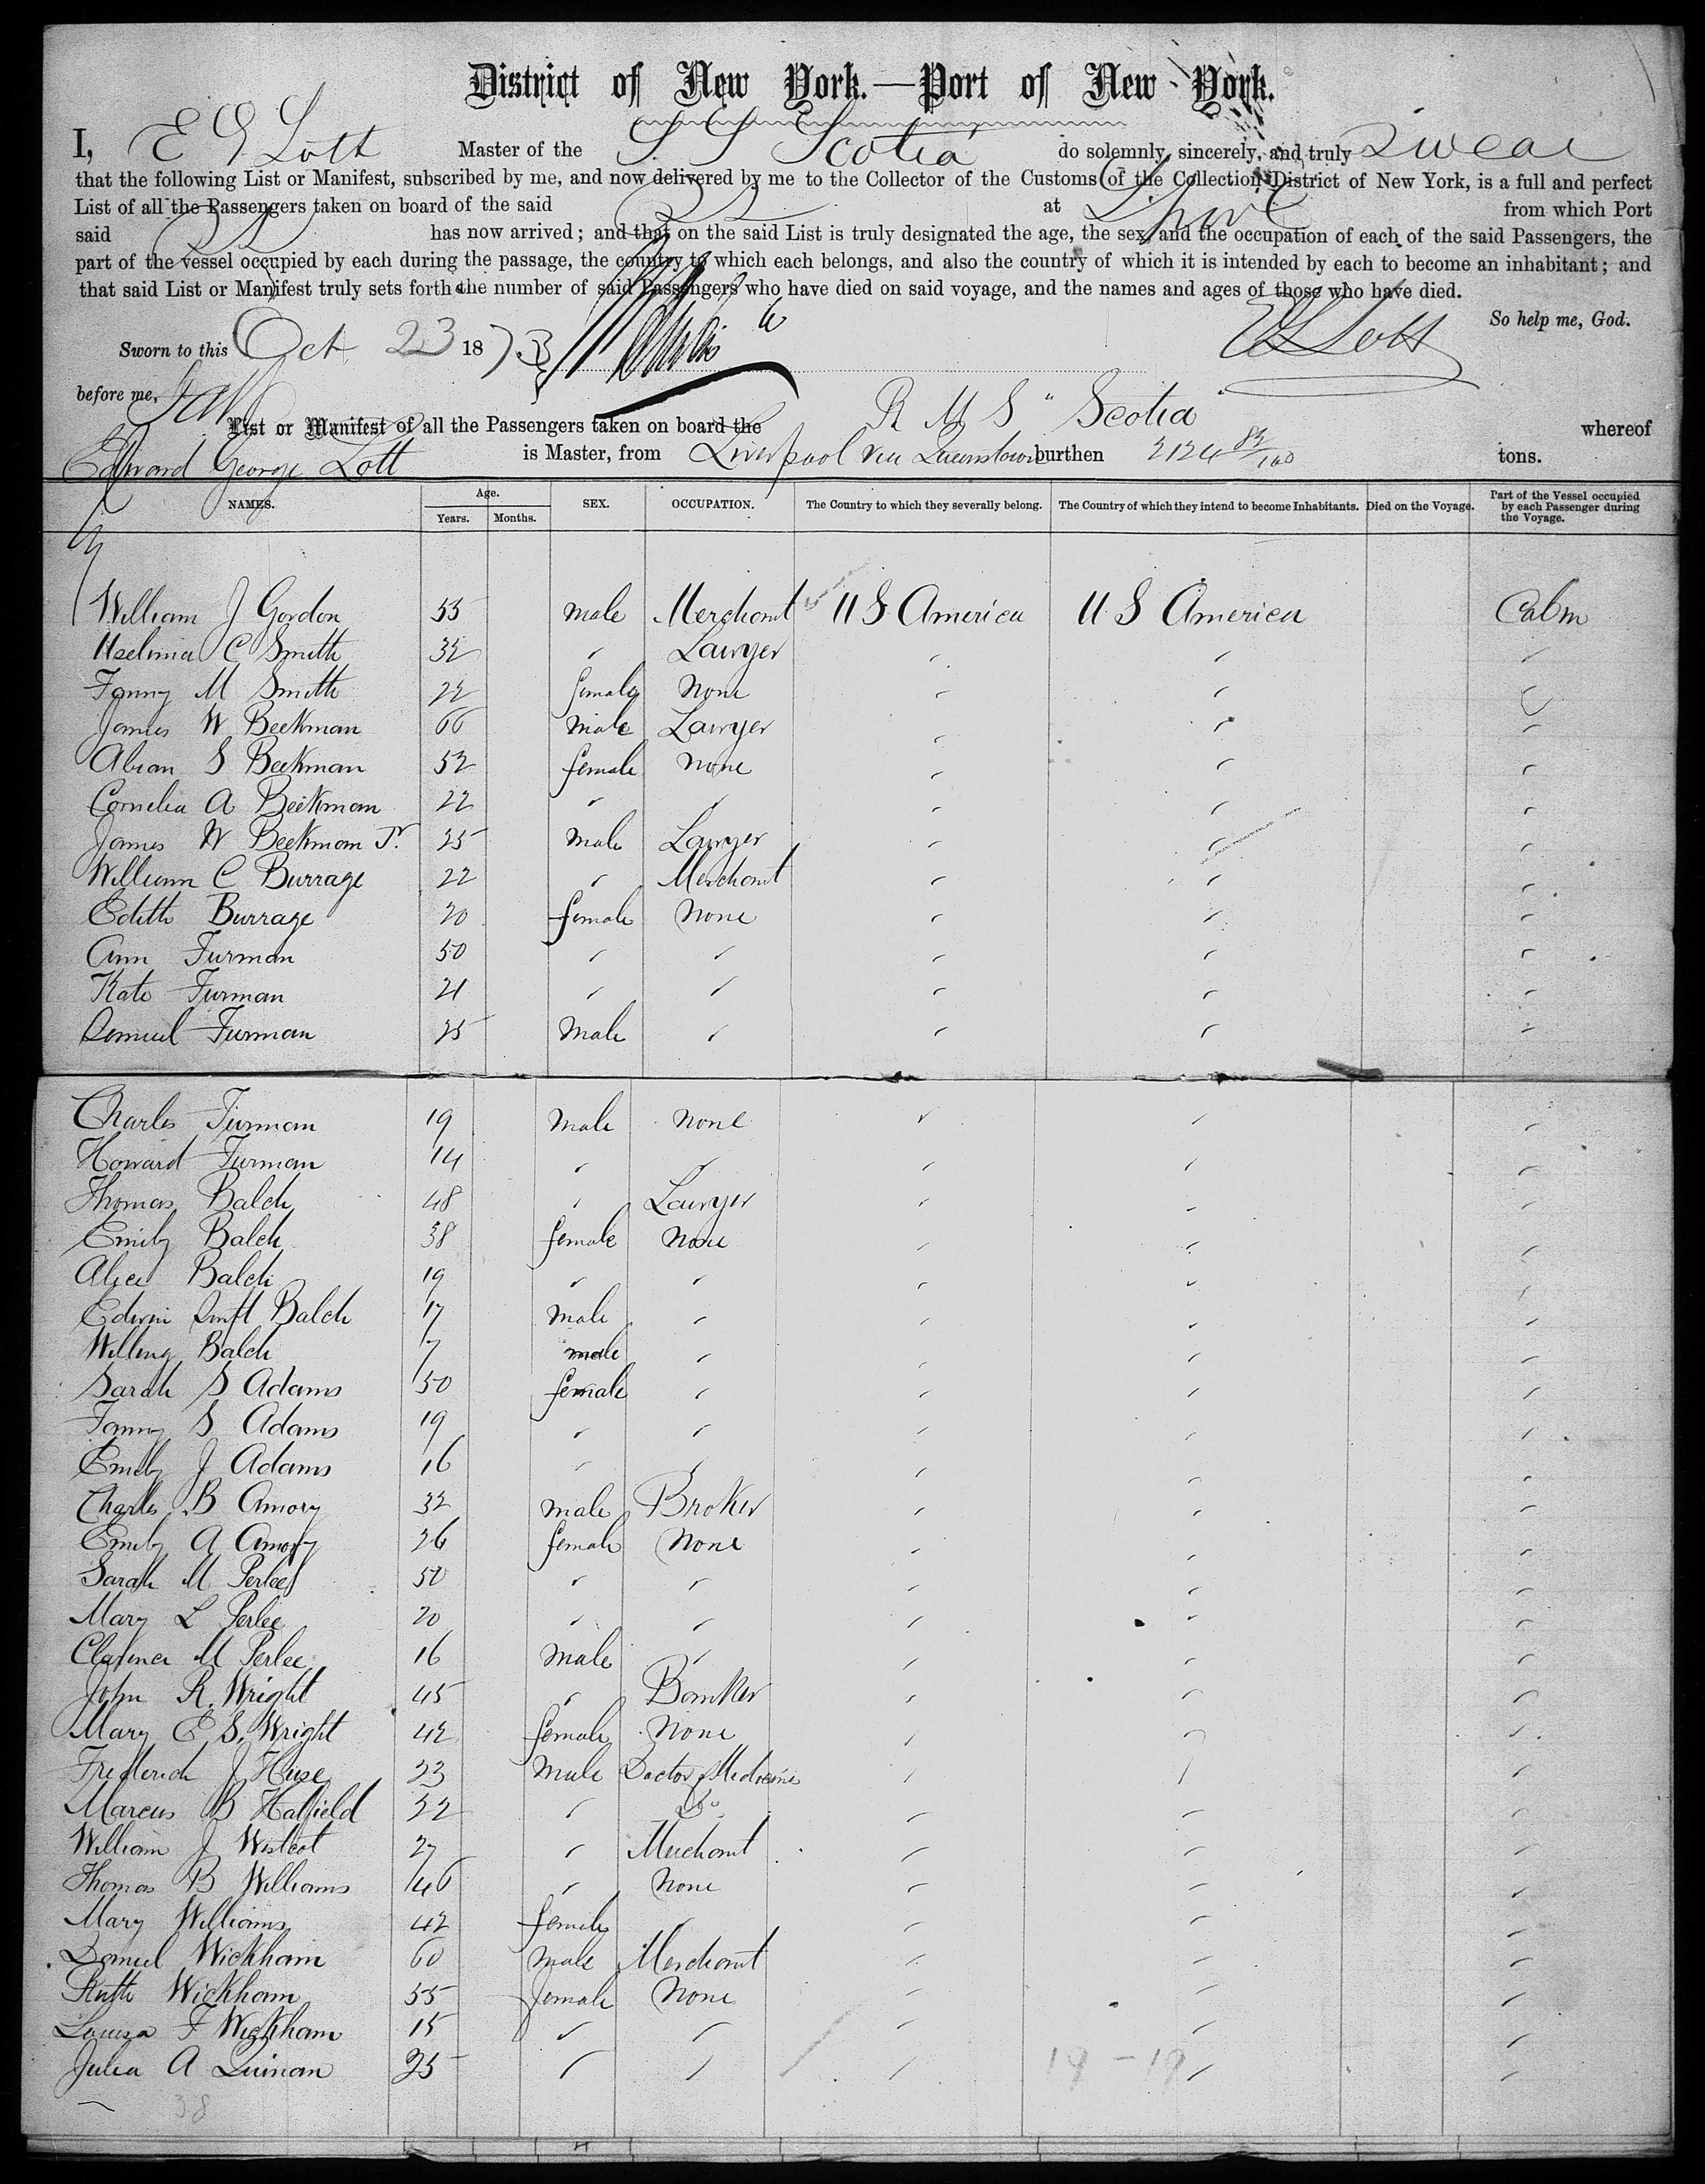 District of New York.—Port of New York.
I, E G Lott Master of the S S Scotia do solemnly, sincerely, and truly Swear
that the following List or Manifest, subscribed by me, and now delivered by me to the Collector of the Customs of the Collection District of New York, is a full and perfect
List of all the Passengers taken on board of the said SS at L'pool from which Port
said SS has now arrived; and that on the said List is truly designated the age, the sex, and the occupation of each of the said Passengers, the
part of the vessel occupied by each during the passage, the country to which each belongs, and also the country of which it is intended by each to become an inhabitant; and
that said List or Manifest truly sets forth the number of said Passengers who have died on said voyage, and the names and ages of those who have died.
So help me, God.
Sworn to this Oct 23 1873 EG Lott
before me,
List or Manifest of all the Passengers taken on board the R M S "Scotia" whereof
Edward George Lott is Master, from Liverpool via Queenstown burthen 2124 82/100 tons.
NAMES. Age. Years. Months. SEX. OCCUPATION. The Country to which they severally belong. The Country of which they intend to become Inhabitants. Died on the Voyage. Part of the Vessel occupied by each Passenger during the Voyage.
William J Gordon 55 male Merchant U S America U S America Cabin
C Smith 32 " Lawyer " " "
Fanny M Smith 22 female None " " "
James W Beekman 66 male Lawyer " " "
Abian S Beekman 52 female None " " "
Cornelia A Beekman 22 " " " " "
James W Beekman Jr. 25 male Lawyer " " "
William C Burrage 22 " Merchant " " "
Edith Burrage 20 female None " " "
Ann Furman 50 " " " " "
Kate Furman 21 " " " " "
Samuel Furman 25 Male " " " "
Charles Furman 19 male None " " "
Howard Furman 14 " " " " "
Thomas Balch 48 " Lawyer " " "
Emily Balch 38 female None " " "
Alice Balch 19 " " " " "
Edwin Swift Balch 17 male " " " "
Willing Balch 7 male " " " "
Sarah S Adams 50 female " " " "
Fanny S Adams 19 " " " " "
Emily J Adams 16 " " " " "
Charles B Amory 32 male Broker " " "
Emily A Amory 26 female None " " "
Sarah M Perlee 50 " " " " "
Mary L Perlee 20 " " " " "
Clarence M Perlee 16 male " " " "
John R. Wright 45 " Banker " " "
Mary E S. Wright 42 female None " " "
Frederick J Huse 23 Male Doctor of Medicine " " "
Marcus B Hatfield 32 " Do " " "
William J Westcot 27 " Merchant " " "
Thomas B Williams 46 " None " " "
Mary Williams 42 female " " " "
Daniel Wickham 60 male Merchant " " "
Ruth Wickham 55 female None " " "
Louisa F Wickham 15 " " " " "
Julia A Luinan 25 " " " " "
19 - 19
38